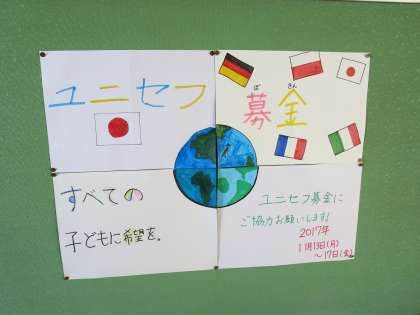 ユニセフ募金
ぼきん
すべての
子どもに希望を.
ユニセフ募金に
ご協力お願いします!
2017年
11月13日(月)
～17日(金)